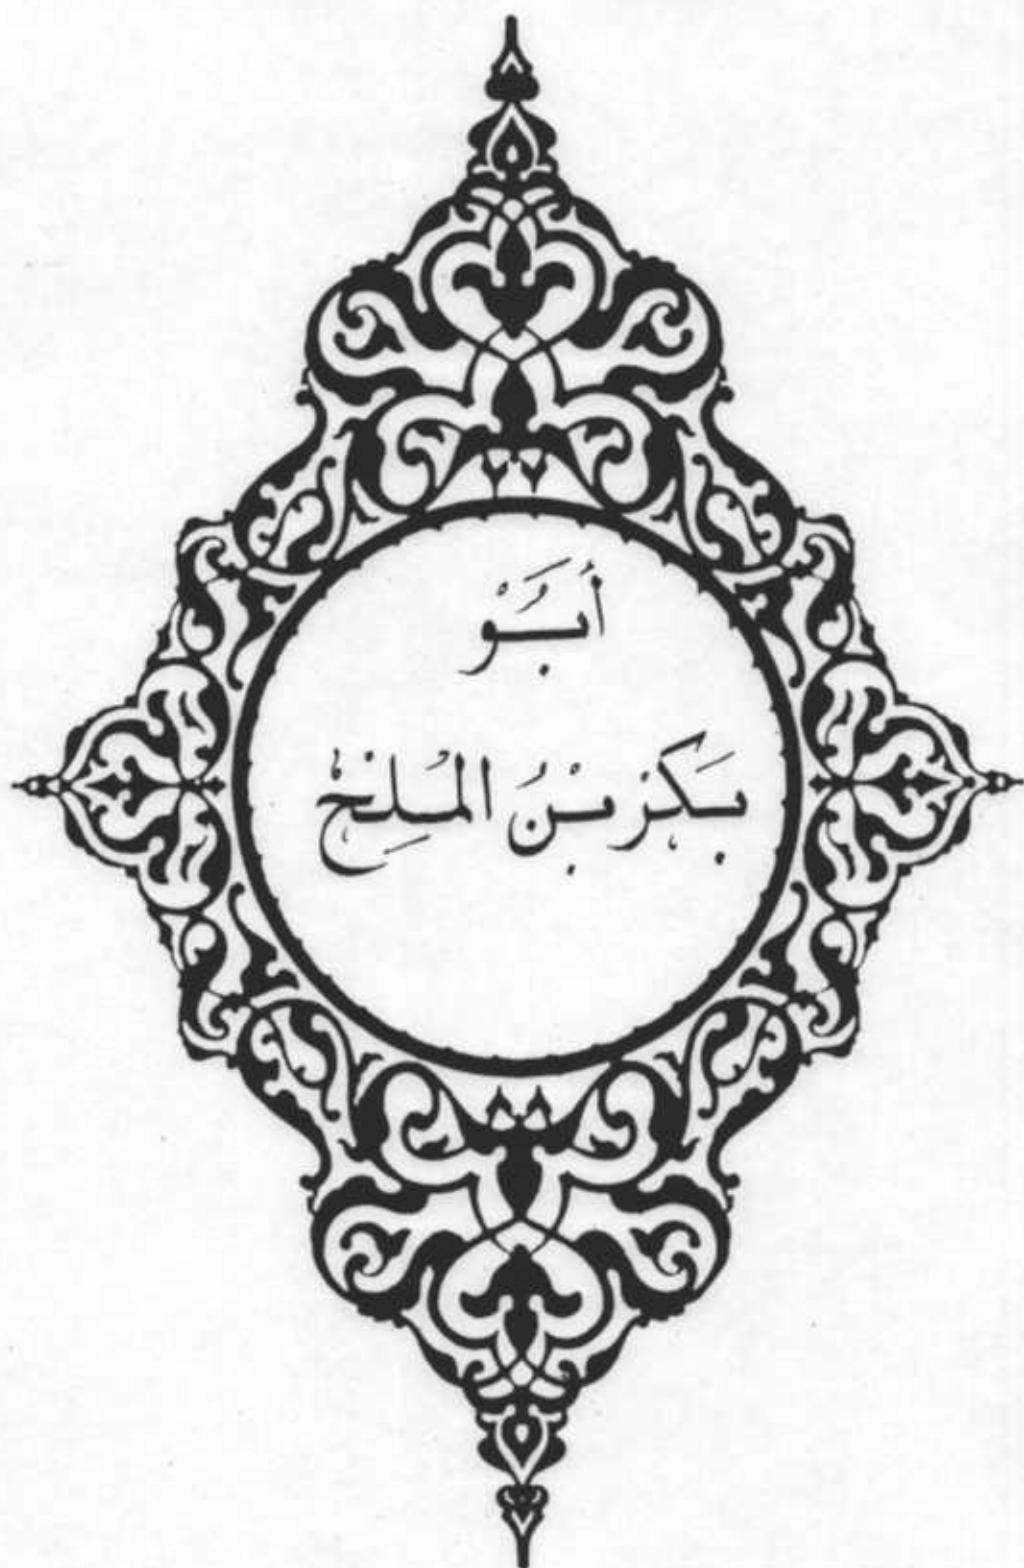 أَبَوْ
بَكْرْ بْنُ الْمُلِحْ